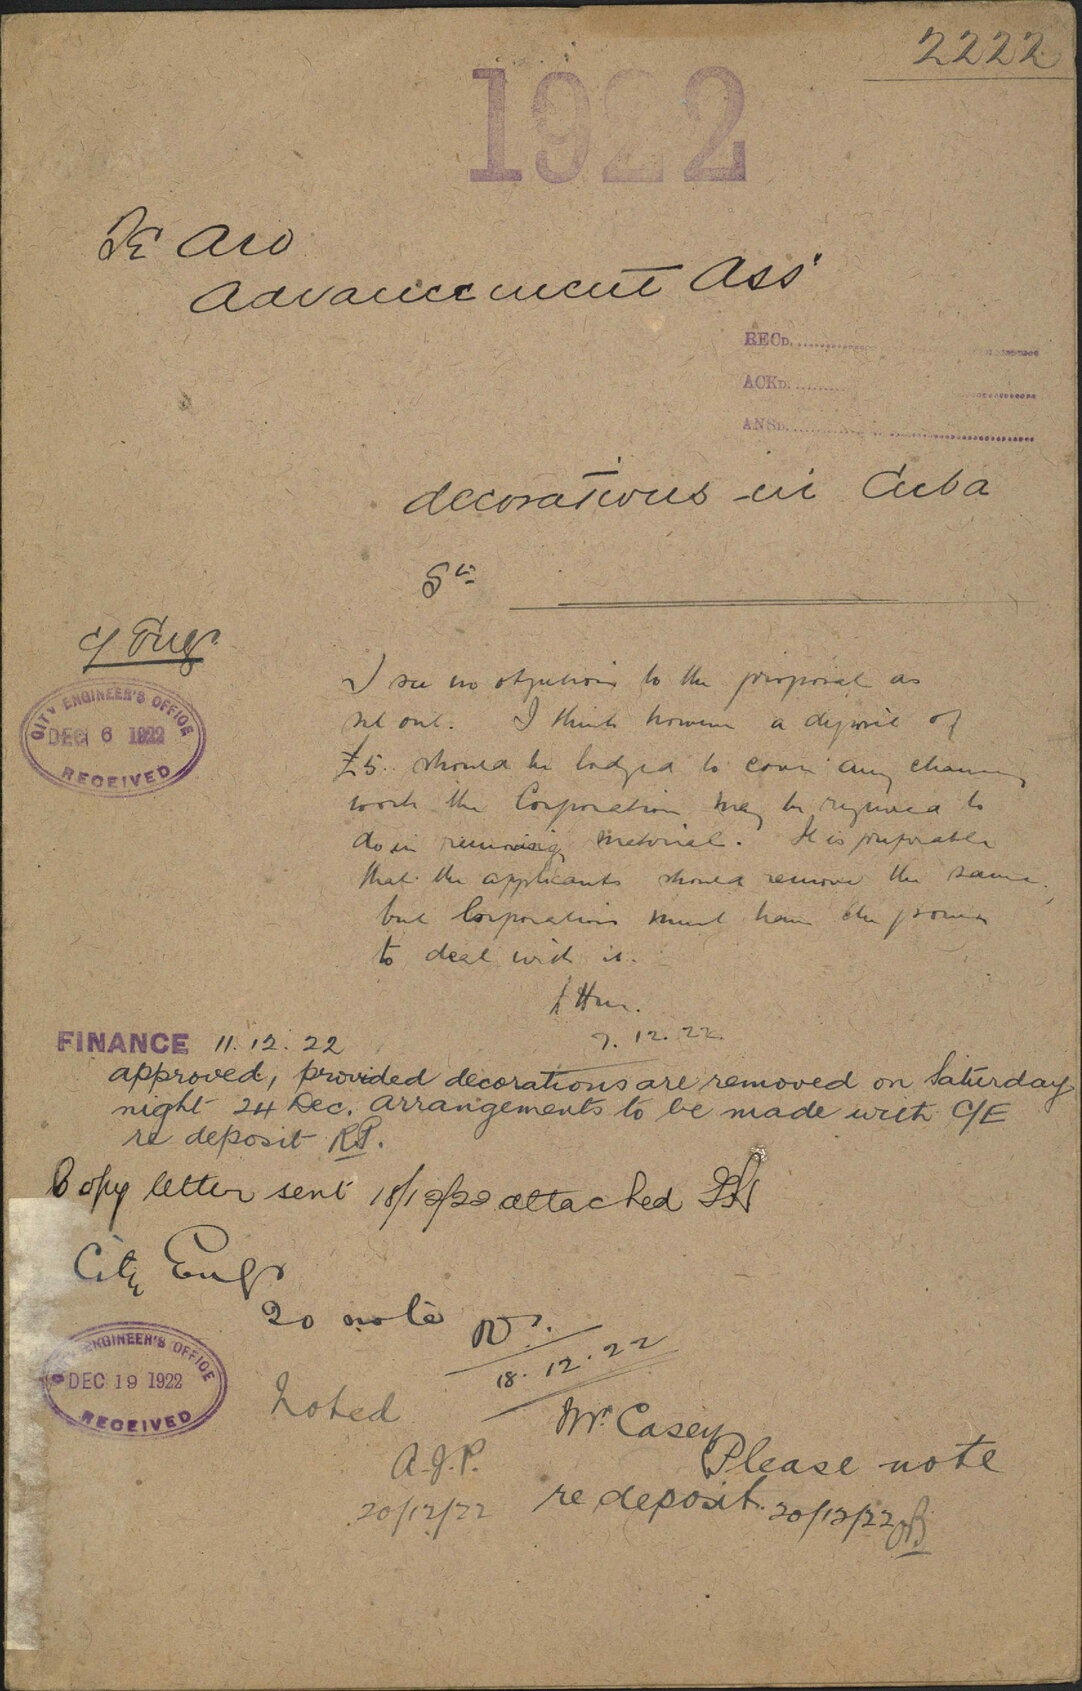 2222
1922
Te Aro
Advancement Ass
RECD.
ACKD.
ANSD.
decorations in Cuba
St
C/ Engr
CITY ENGINEER'S OFFICE
DEC 6 1922
RECEIVED
I see no objections to the proposal as
set out. I think however a deposit of
£5 should be lodged to cover any cleaning
work the Corporation may be required to
do in removing material. It is preferable
that the applicants should remove the same,
but Corporation must have the power
to deal with it.
7.12.22
FINANCE 11.12.22
approved, provided decorations are removed on Saturday
night 24 Dec. arrangements to be made with C/E
re deposit
Copy letter sent 18/12/22 attached
City Engr
To note
18.12.22
CITY ENGINEER'S OFFICE
DEC 19 1922
RECEIVED
Noted
Mr. Casey
Please note
A.J.P.
re deposit. 20/12/22
20/12/22